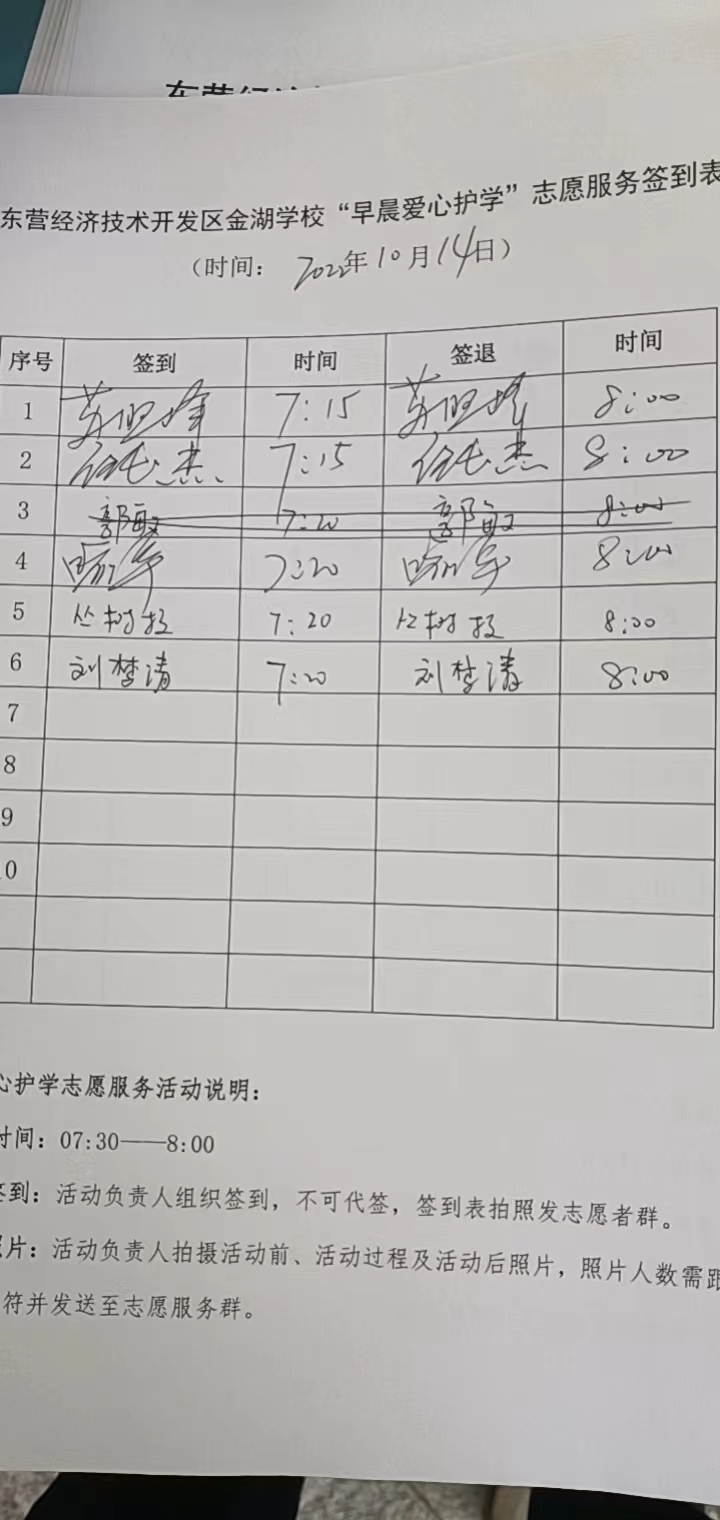 东营经
东营经济技术开发区金湖学校“早晨爱心护学”志愿服务签到表
（时间： 2022年10月14日）
序号 签到 时间 签退 时间
1 7:15 8:00
2 7:15 8:00
3 郭敏 7:20 郭敏 8:00
4 7:20 8:00
5 丛树 7:20 丛树 8:00
6 刘梦清 7:20 刘梦清 8:00
7
8
9
0
心护学志愿服务活动说明：
时间：07:30——8:00
签到：活动负责人组织签到，不可代签，签到表拍照发志愿者群。
照片：活动负责人拍摄活动前、活动过程及活动后照片，照片人数需跟
符并发送至志愿服务群。